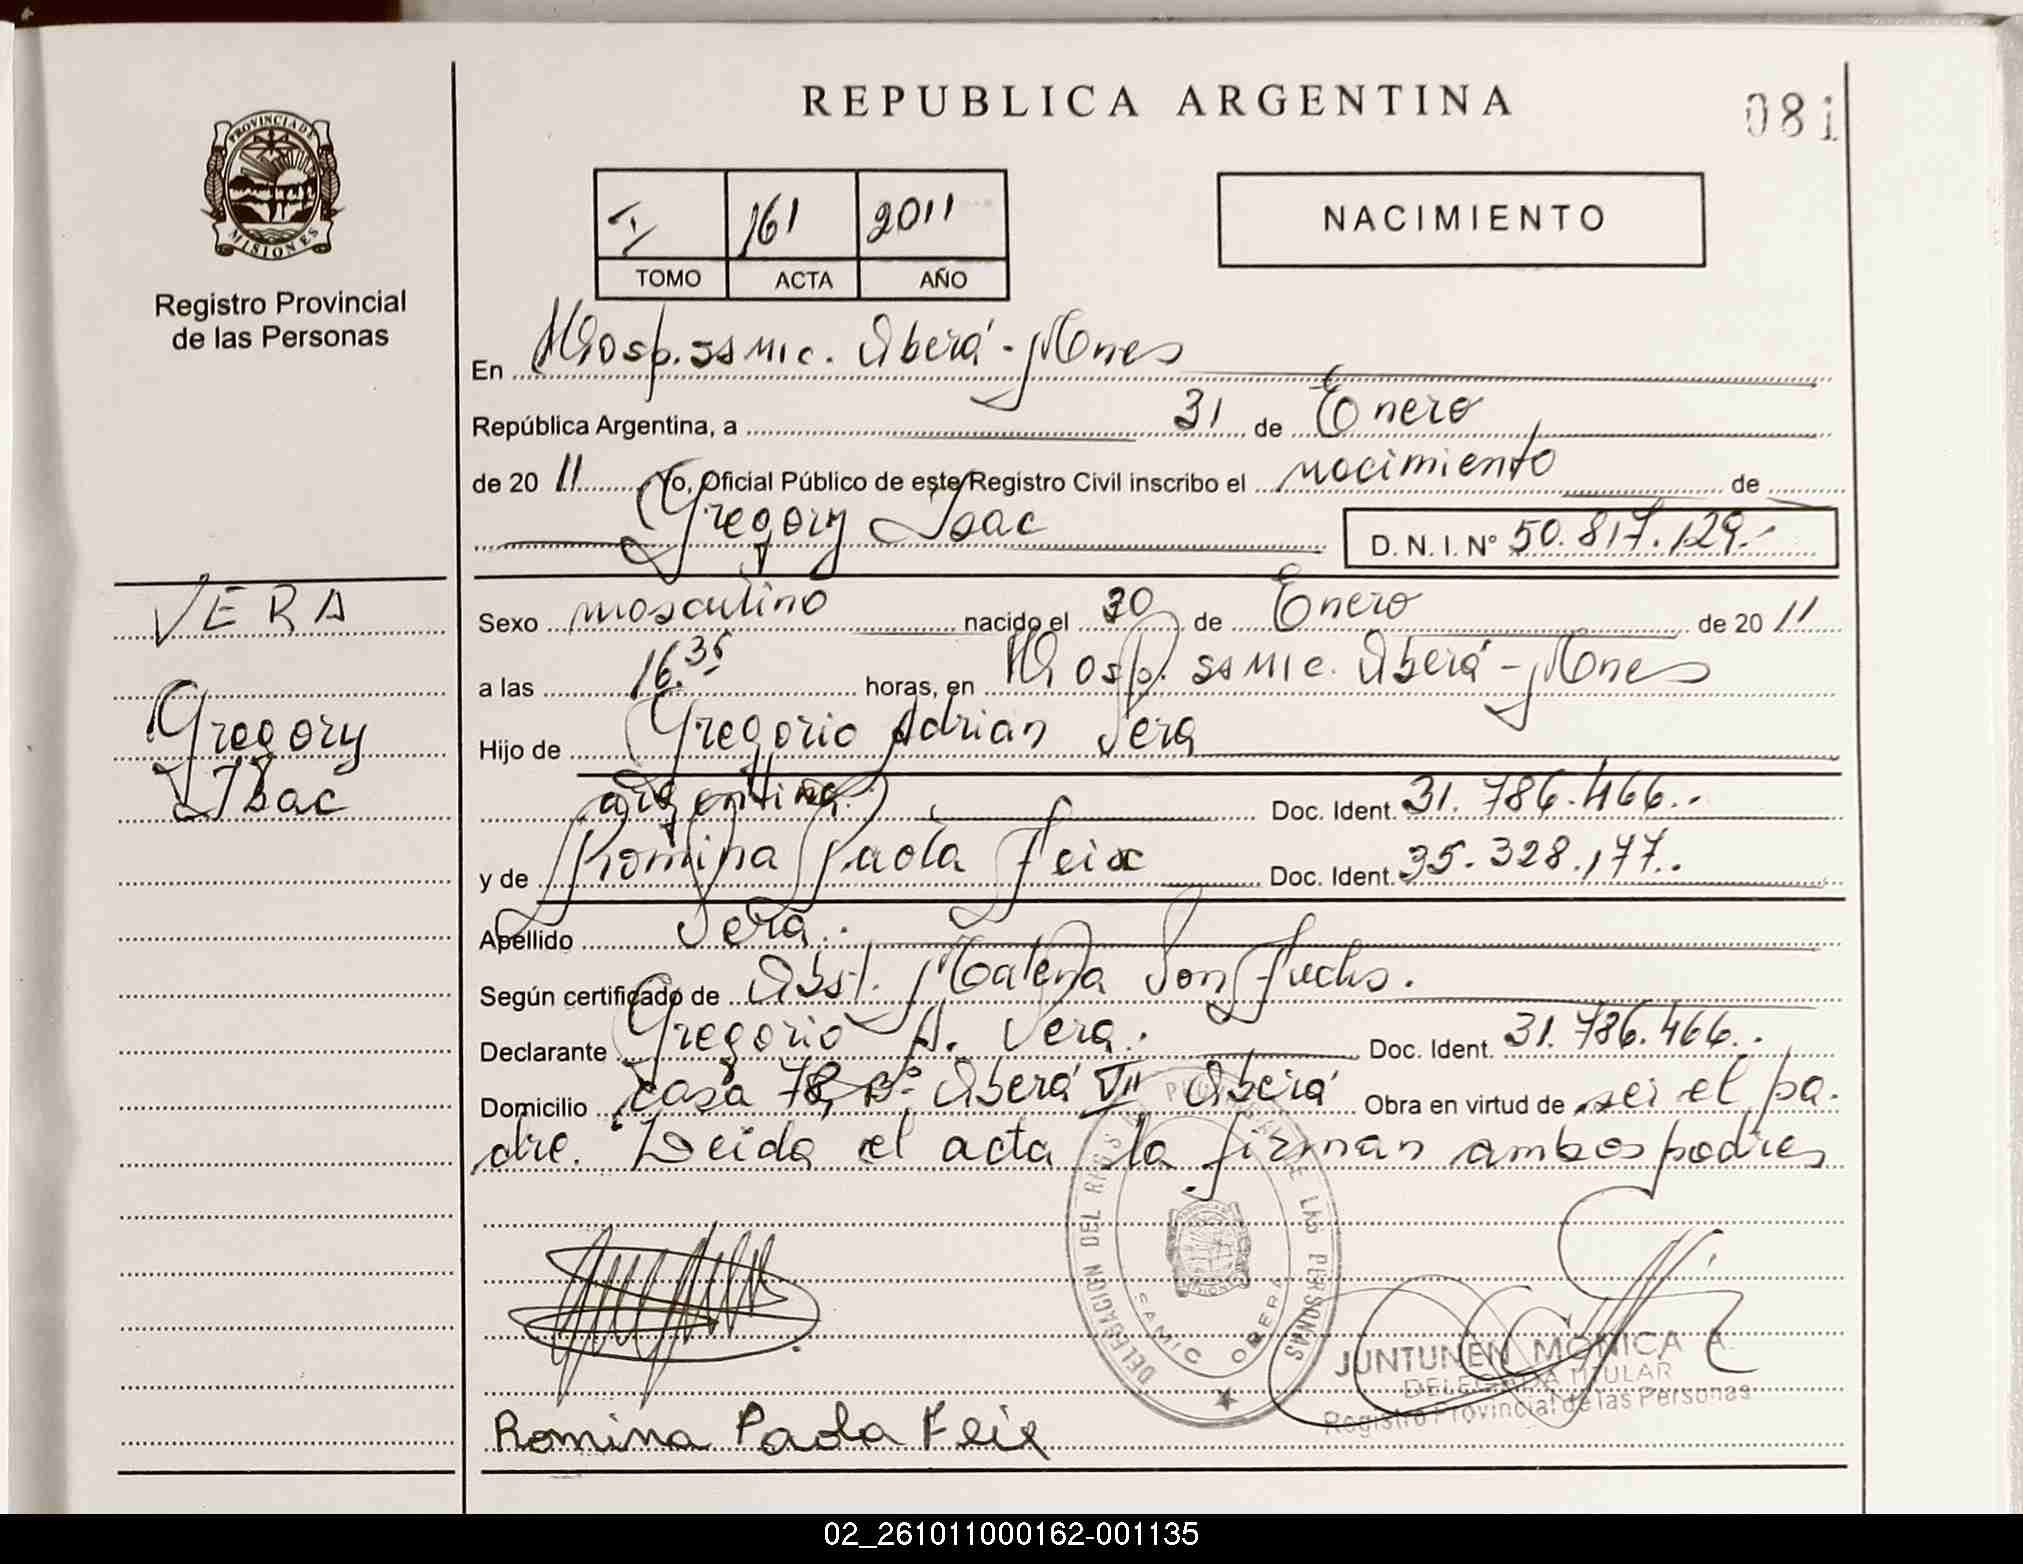 REPUBLICA ARGENTINA
081
PROVINCIA DE
MISIONES
Registro Provincial
de las Personas
I 161 2011
TOMO ACTA AÑO
NACIMIENTO
En Hosp. SAMIC. Oberá - Mnes
República Argentina, a 31 de Enero
de 20 11 Yo, Oficial Público de este Registro Civil inscribo el nacimiento de
Gregory Isac D. N. I. N° 50.817.129.-
VERA
Gregory
Isac
Sexo masculino nacido el 30 de Enero de 20 11
a las 16.35 horas, en Hosp. SAMIC. Oberá - Mnes
Hijo de Gregorio Adrian Vera
argentina. Doc. Ident. 31.786.466..
y de Romina Paola Feix Doc. Ident. 35.328.177..
Apellido Vera.
Según certificado de Obst. Malena Von Fuchs.
Declarante Gregorio A. Vera. Doc. Ident. 31.786.466..
Domicilio casa 78, B° Oberá VII Oberá Obra en virtud de ser el pa-
dre. Leída el acta la firman ambos padres
DELEGACION DEL REG. PROVINCIAL DE LAS PERSONAS
SAMIC OBERA
MISIONES
JUNTUNEN MONICA A.
DELEGADA TITULAR
Registro Provincial de las Personas
Romina Paola Feix
02_261011000162-001135